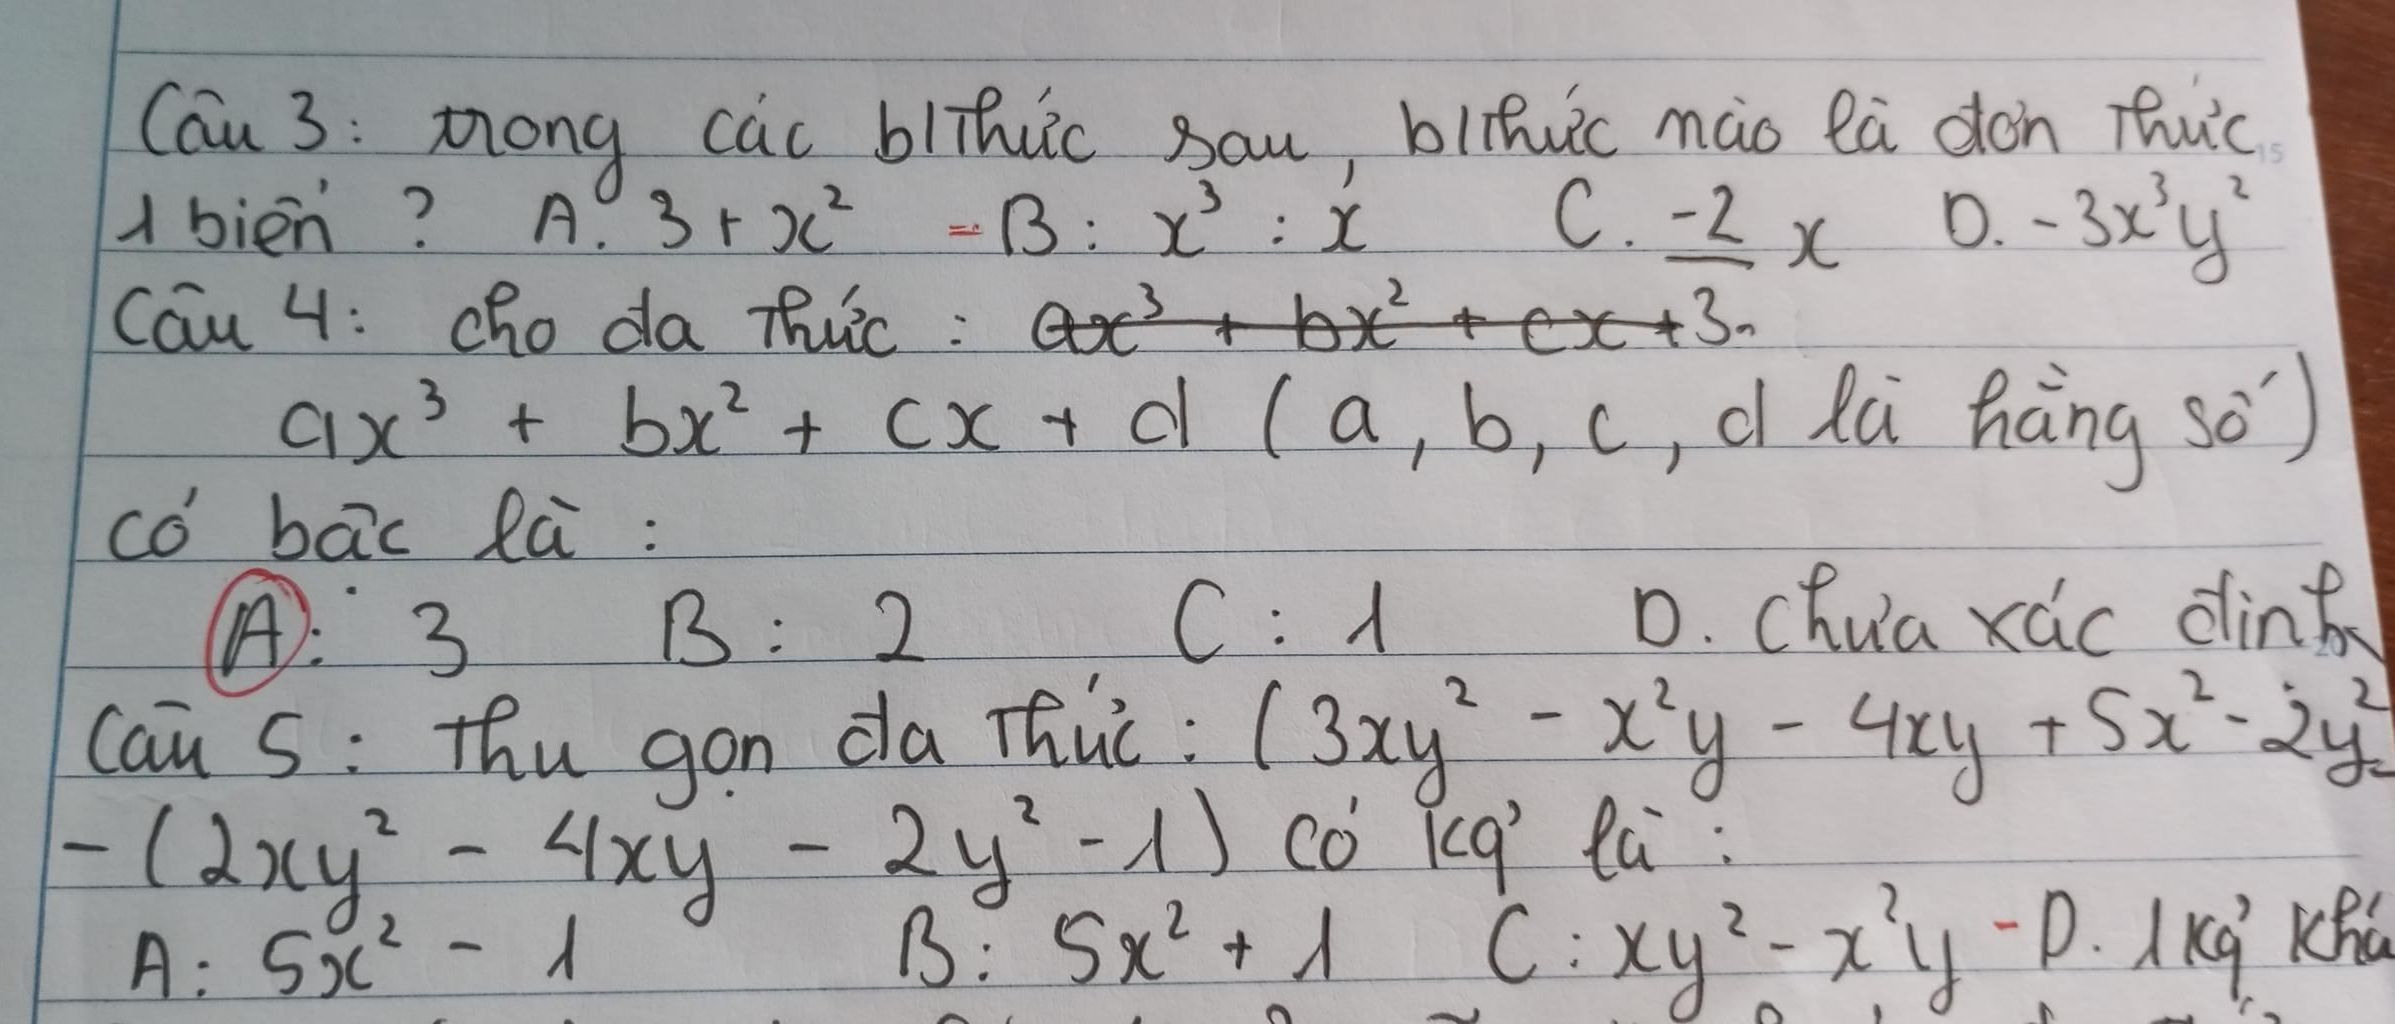 Câu 3: trong các b/thức sau, b/thức nào là đơn thức
1 biến ? A. 3 + x² - B: x³ : x C. -2 x D. -3x³y²
Câu 4: cho đa thức : ax³ + bx² + cx + 3
ax³ + bx² + cx + d (a, b, c, d là hằng số)
có bậc là :
A: 3 B: 2 C: 1 D. chưa xác định
Câu 5: Thu gọn đa thức: (3xy² - x²y - 4xy + 5x² - 2y²
- (2xy² - 4xy - 2y² - 1) có kq' là :
A: 5x² - 1 B: 5x² + 1 C: xy² - x²y - D. 1 kq'